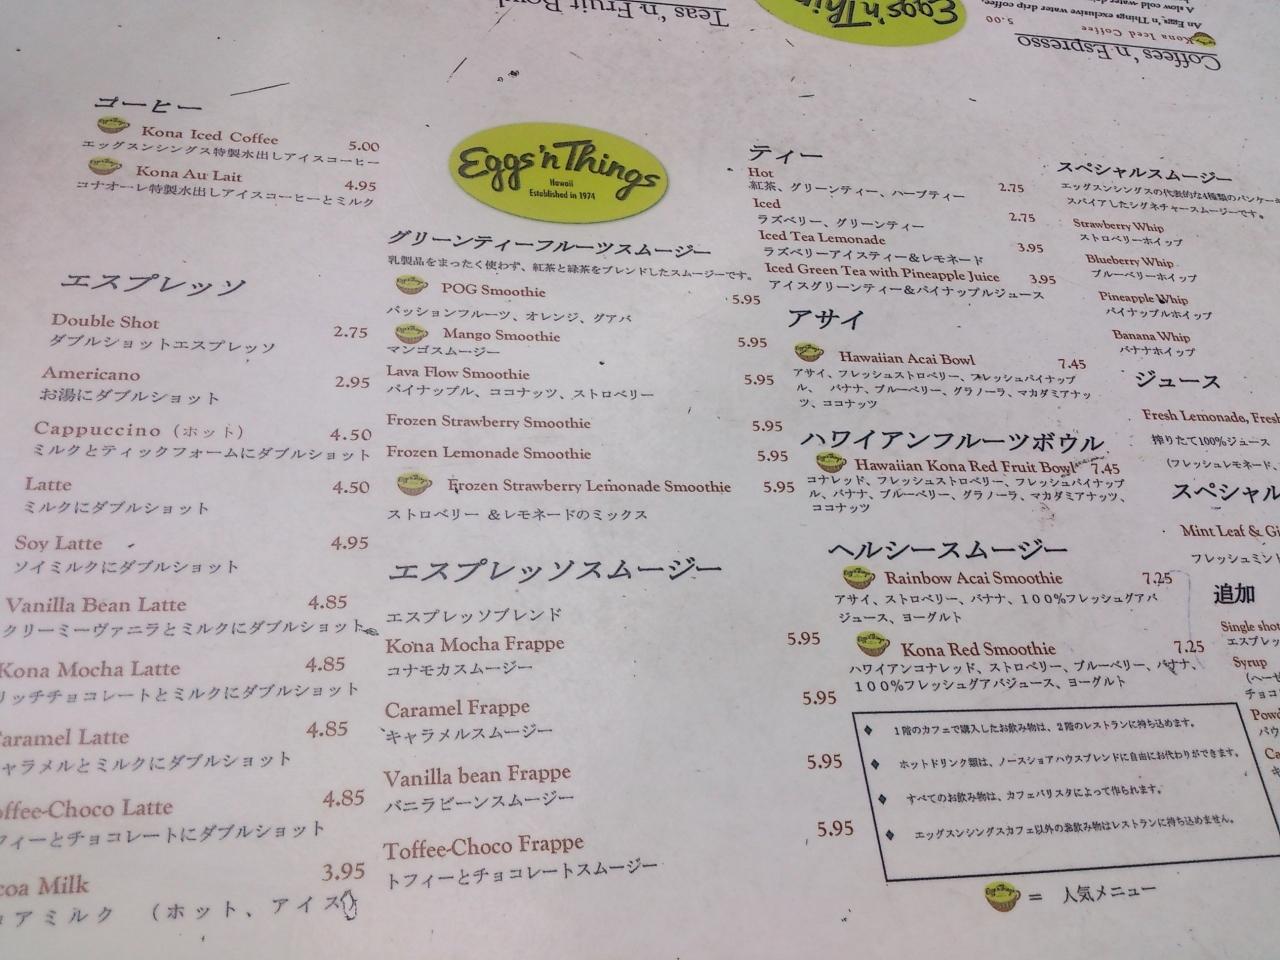 Teas 'n Fruit Bowl
Coffees 'n Espresso
Kona Iced Coffee
5.00
An Eggs 'n Things exclusive water drip coffee
A slow cold water
Eggs 'n Things
コーヒー
Kona Iced Coffee 5.00
エッグスンシングス特製水出しアイスコーヒー
Kona Au Lait 4.95
コナオーレ特製水出しアイスコーヒーとミルク
エスプレッソ
Double Shot 2.75
ダブルショットエスプレッソ
Americano 2.95
お湯にダブルショット
Cappuccino (ホット) 4.50
ミルクとティックフォームにダブルショット
Latte 4.50
ミルクにダブルショット
Soy Latte 4.95
ソイミルクにダブルショット
Vanilla Bean Latte 4.85
クリーミーヴァニラとミルクにダブルショット
Kona Mocha Latte 4.85
リッチチョコレートとミルクにダブルショット
Caramel Latte 4.85
ャラメルとミルクにダブルショット
offee-Choco Latte 4.85
フィーとチョコレートにダブルショット
coa Milk 3.95
コアミルク (ホット、アイス)
Eggs 'n Things
Hawaii
Established in 1974
グリーンティーフルーツスムージー
乳製品をまったく使わず、紅茶と緑茶をブレンドしたスムージーです。
POG Smoothie 5.95
パッションフルーツ、オレンジ、グアバ
Mango Smoothie 5.95
マンゴスムージー
Lava Flow Smoothie 5.95
パイナップル、ココナッツ、ストロベリー
Frozen Strawberry Smoothie 5.95
Frozen Lemonade Smoothie 5.95
Frozen Strawberry Lemonade Smoothie 5.95
ストロベリー &レモネードのミックス
エスプレッソスムージー
エスプレッソブレンド
Kona Mocha Frappe 5.95
コナモカスムージー
Caramel Frappe 5.95
キャラメルスムージー
Vanilla bean Frappe 5.95
バニラビーンスムージー
Toffee-Choco Frappe 5.95
トフィーとチョコレートスムージー
ティー
Hot 2.75
紅茶、グリーンティー、ハーブティー
Iced 2.75
ラズベリー、グリーンティー
Iced Tea Lemonade 3.95
ラズベリーアイスティー&レモネード
Iced Green Tea with Pineapple Juice 3.95
アイスグリーンティー&パイナップルジュース
アサイ
Hawaiian Acai Bowl 7.45
アサイ、フレッシュストロベリー、フレッシュパイナップ
ル、バナナ、ブルーベリー、グラノーラ、マカダミアナッ
ツ、ココナッツ
ハワイアンフルーツボウル
Hawaiian Kona Red Fruit Bowl 7.45
コナレッド、フレッシュストロベリー、フレッシュパイナップ
ル、バナナ、ブルーベリー、グラノーラ、マカダミアナッツ、
ココナッツ
ヘルシースムージー
Rainbow Acai Smoothie 7.25
アサイ、ストロベリー、バナナ、100%フレッシュグアバ
ジュース、ヨーグルト
Kona Red Smoothie 7.25
ハワイアンコナレッド、ストロベリー、ブルーベリー、バナナ、
100%フレッシュグアバジュース、ヨーグルト
1階のカフェで購入したお飲み物は、2階のレストランに持ち込めます。
ホットドリンク類は、ノースショアハウスブレンドに自由にお代わりができます。
すべてのお飲み物は、カフェバリスタによって作られます。
エッグスンシングスカフェ以外のお飲み物はレストランに持ち込めません。
= 人気メニュー
スペシャルスムージー
エッグスンシングスの代表的な4種類のパンケーキ
スパイアしたシグネチャースムージーです。
Strawberry Whip
ストロベリーホイップ
Blueberry Whip
ブルーベリーホイップ
Pineapple Whip
パイナップルホイップ
Banana Whip
バナナホイップ
ジュース
Fresh Lemonade, Fresh
搾りたて100%ジュース
(フレッシュレモネード、
スペシャル
Mint Leaf & Gi
フレッシュミント
追加
Single shot
エスプレッ
Syrup
(ヘーゼ
チョコ
Powd
パウ
Ca
キ